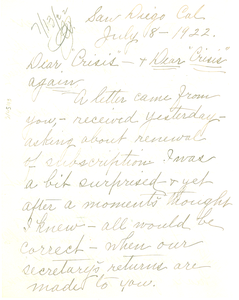 San Diego Cal
July 18 - 1922.
Dear "Crisis" - & Dear "Crisis"
again
A letter came from
you, - received yesterday -
asking about renewal
of subscription. I was
a bit surprised & yet
after a moments thought
I knew - all would be
correct - when our
secretary's returns are
made to you.